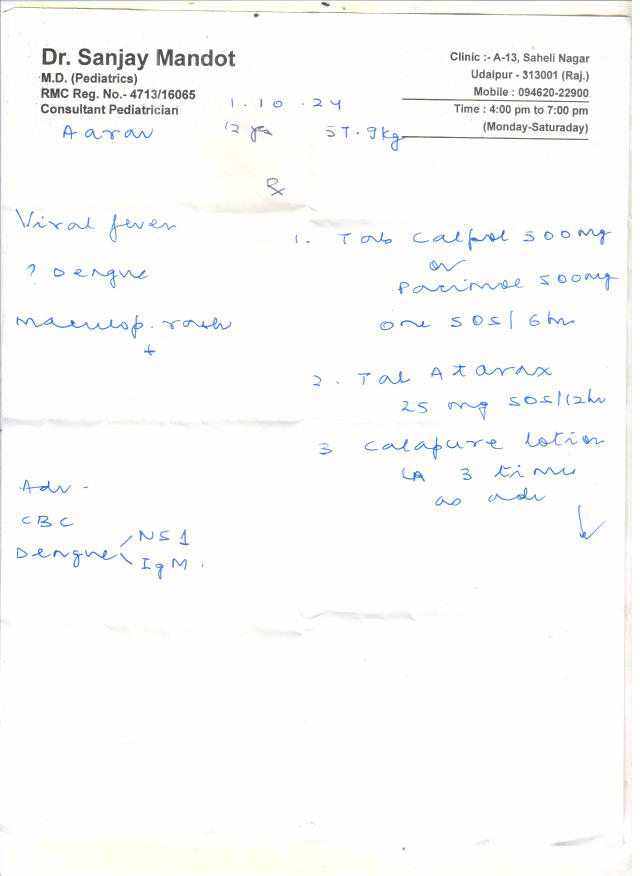 Dr. Sanjay Mandot
M.D. (Pediatrics)
RMC Reg. No.- 4713/16065
Consultant Pediatrician
Clinic :- A-13, Saheli Nagar
Udaipur - 313001 (Raj.)
Mobile : 094620-22900
Time : 4:00 pm to 7:00 pm
(Monday-Saturaday)
1.10.24
Aarav 12 yrs 57.9kg
Rx
Viral fever
? Dengue
Maculop. rash
+
Adv -
CBC
Dengue NS1
IgM.
1. Tab Calpol 500mg
or
Pacimol 500mg
one SOS/6hr
2. Tab Atarax
25 mg SOS/12hr
3 Calapure lotion
LA 3 times
as adv